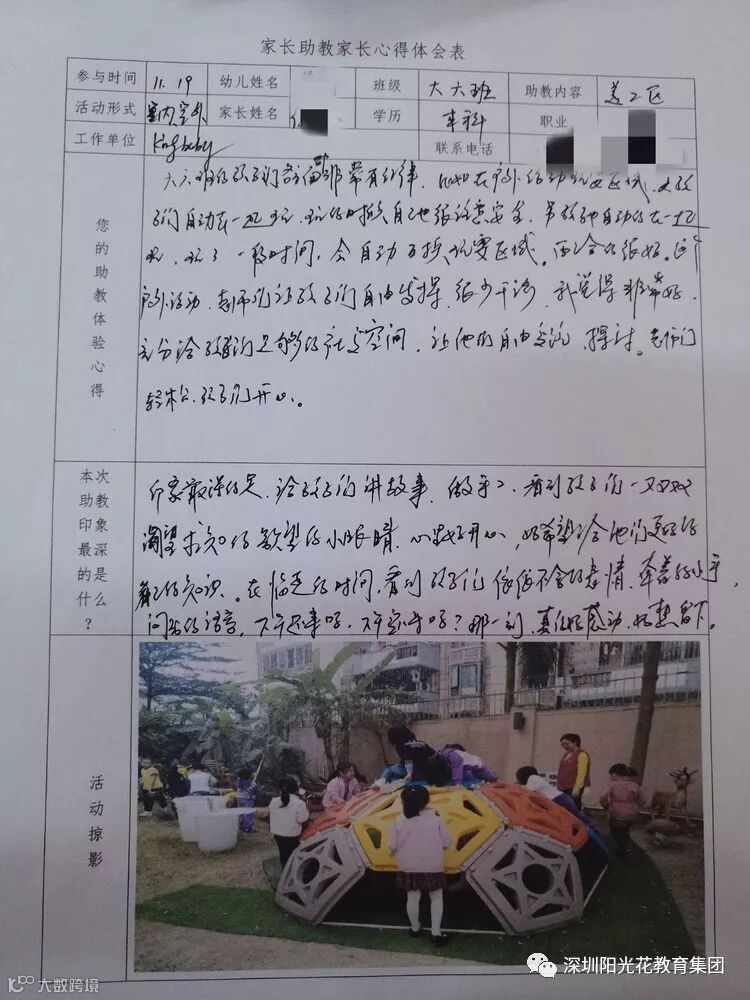 家长助教家长心得体会表
参与时间 11.19 幼儿姓名 班级 大六班 助教内容 美工区
活动形式 室内室外 家长姓名 学历 本科 职业
工作单位 联系电话
您的助教体验心得
大六班的孩子们都非常有纪律，比如在户外活动玩耍区域，
们自动在一起玩，玩的时候自己也很注意安全，
玩，玩了一段时间，会自动互换玩耍区域。配合的很好。
户外活动，老师们让孩子们自由发挥，很少干涉，我觉得非常好，
充分给孩子们足够的空间，让他们自由交流，探讨。老师们
轻松，孩子们开心。
本次助教印象最深的是什么？
印象最深的是，给孩子们讲故事，做手工，看到孩子们一双双
渴望求知的欲望的小眼睛，心里好开心，好希望给他们更多的
知识。在临走的时间，看到孩子们依依不舍的表情，牵着的小手，
问我的语言，下午还来吗，下午还来吗？那一刻，真的好感动，好想留下。
活动掠影
大数跨境
深圳阳光花教育集团